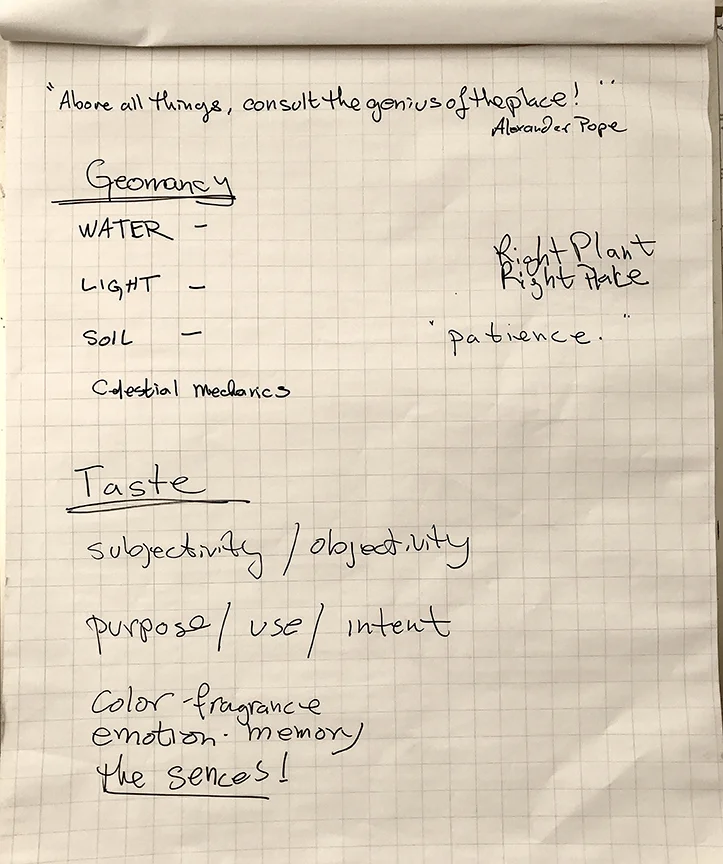 "Above all things, consult the genius of the place!"
Alexander Pope
Geomancy
WATER -
LIGHT -
SOIL -
Celestial mechanics
Right Plant
Right Place
"patience."
Taste
subjectivity / objectivity
purpose / use / intent
Color - fragrance
emotion - memory
the sences!